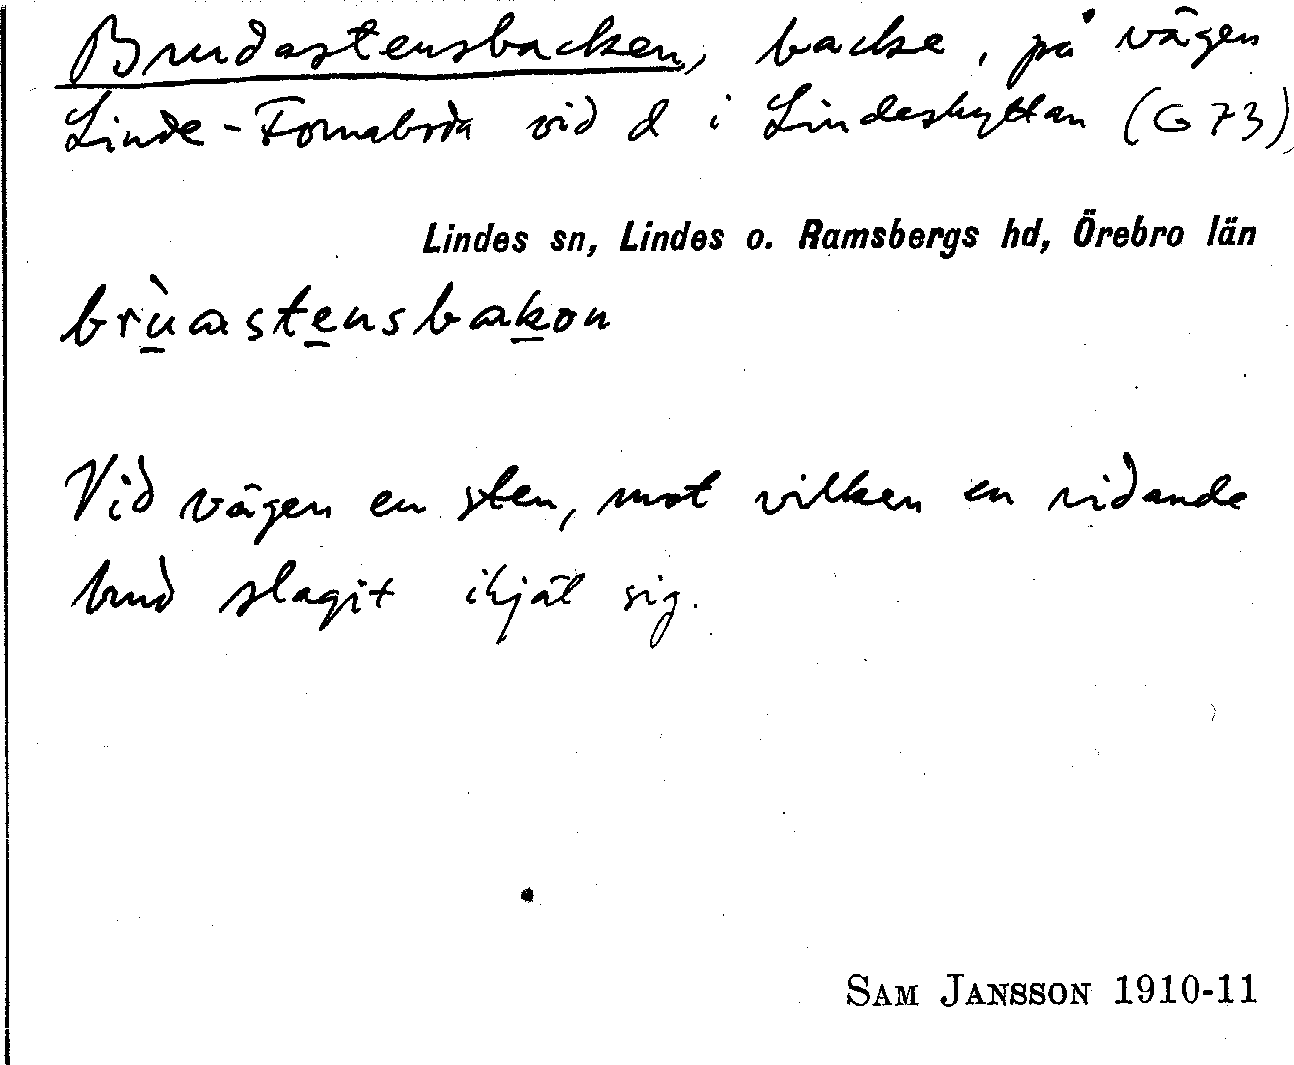 Brudastensbacken, backe, på vägen
Linde-Fornaboda vid d i Lindeshyttan (G 73),
Lindes sn, Lindes o. Ramsbergs hd, Örebro län
brùastensbakon
Vid vägen en sten, mot vilken en ridande
brud slagit ihjäl sig.
SAM JANSSON 1910-11